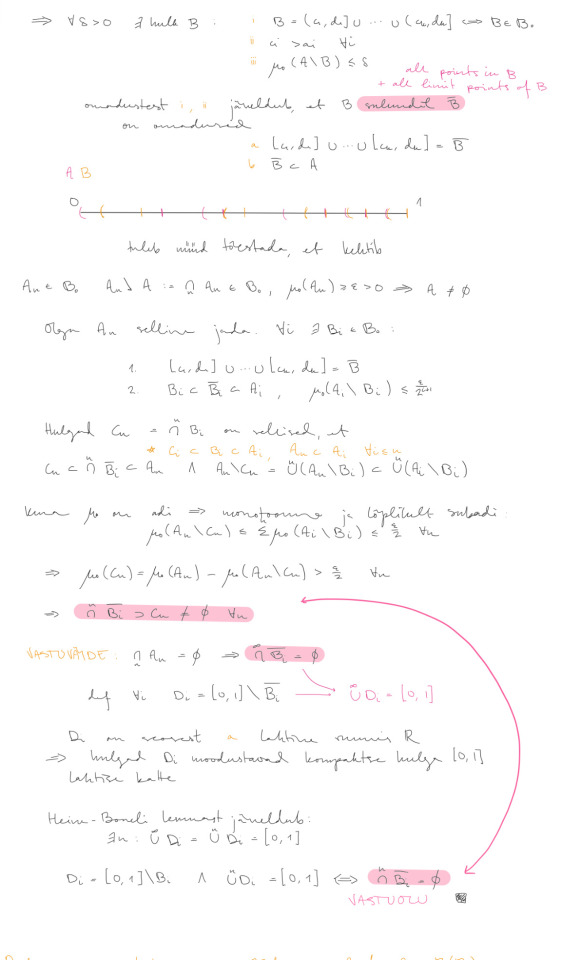 ⇒ ∀δ>0 ∃ hulk B : i B = (c₁, d₁] ∪ ⋯ ∪ (cₙ, dₙ] ⟺ B ∈ B₀
ii ci > ai ∀i
iii μ₀(A\B) ≤ δ
all points in B
+ all limit points of B
omadustest i, ii järeldub, et B sulundil B̅
on omadused
a [c₁, d₁] ∪ ⋯ ∪ [cₙ, dₙ] = B̅
b B̅ ⊂ A
A B
0 1
tuleb nüüd tõestada, et kehtib
Aₙ ∈ B₀ Aₙ ↘ A := ∩ Aₙ ∈ B₀, μ₀(Aₙ) ≥ ε > 0 ⇒ A ≠ ∅
Olgu Aₙ selline jada. ∀i ∃ Bi ∈ B₀ :
1. [c₁, d₁] ∪ ⋯ ∪ [cₙ, dₙ] = B̅
2. Bi ⊂ B̅i ⊂ Ai, μ₀(Ai \ Bi) ≤ ε/2ⁱ⁺¹
Hulgad Cₙ = ∩ Bi on sellised, et
* Ci ⊂ Bi ⊂ Ai, Aₙ ⊂ Ai ∀i≤n
Cₙ ⊂ ∩ B̅i ⊂ Aₙ ∧ Aₙ\Cₙ = ∪(Aₙ\Bi) ⊂ ∪(Ai\Bi)
kuna μ₀ on adi ⇒ monotoonne ja lõplikult subadi:
μ₀(Aₙ\Cₙ) ≤ Σμ₀(Ai\Bi) ≤ ε/2 ∀n
⇒ μ₀(Cₙ) = μ₀(Aₙ) − μ₀(Aₙ\Cₙ) > ε/2 ∀n
⇒ ∩ B̅i ⊃ Cₙ ≠ ∅ ∀n
VASTUVÄIDE: ∩ Aₙ = ∅ ⇒ ∩ B̅i = ∅
def ∀i Di = [0, 1] \ B̅i → ∪ Di = [0, 1]
Di on a lahtine ruumis R
⇒ hulgad Di moodustavad kompaktse hulga [0, 1]
lahtise katte
Heine-Boreli lemmast järeldub:
∃n : ∪ Di = ∪ Di = [0, 1]
Di = [0, 1]\Bi ∧ ∪Di = [0, 1] ⟺ ∩ B̅i = ∅
VASTUOLU